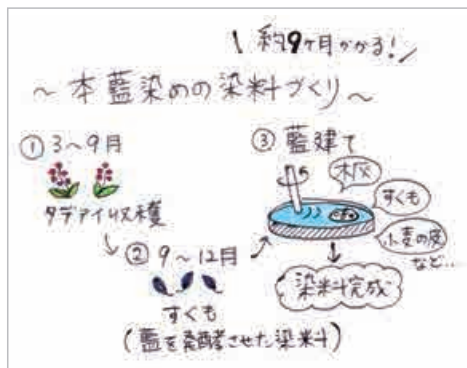 約9ヶ月かかる!
～本藍染めの染料づくり～
① 3～9月
タデアイ収穫
② 9～12月
すくも
(藍を発酵させた染料)
③ 藍建て
木灰
すくも
小麦の皮
など…
染料完成